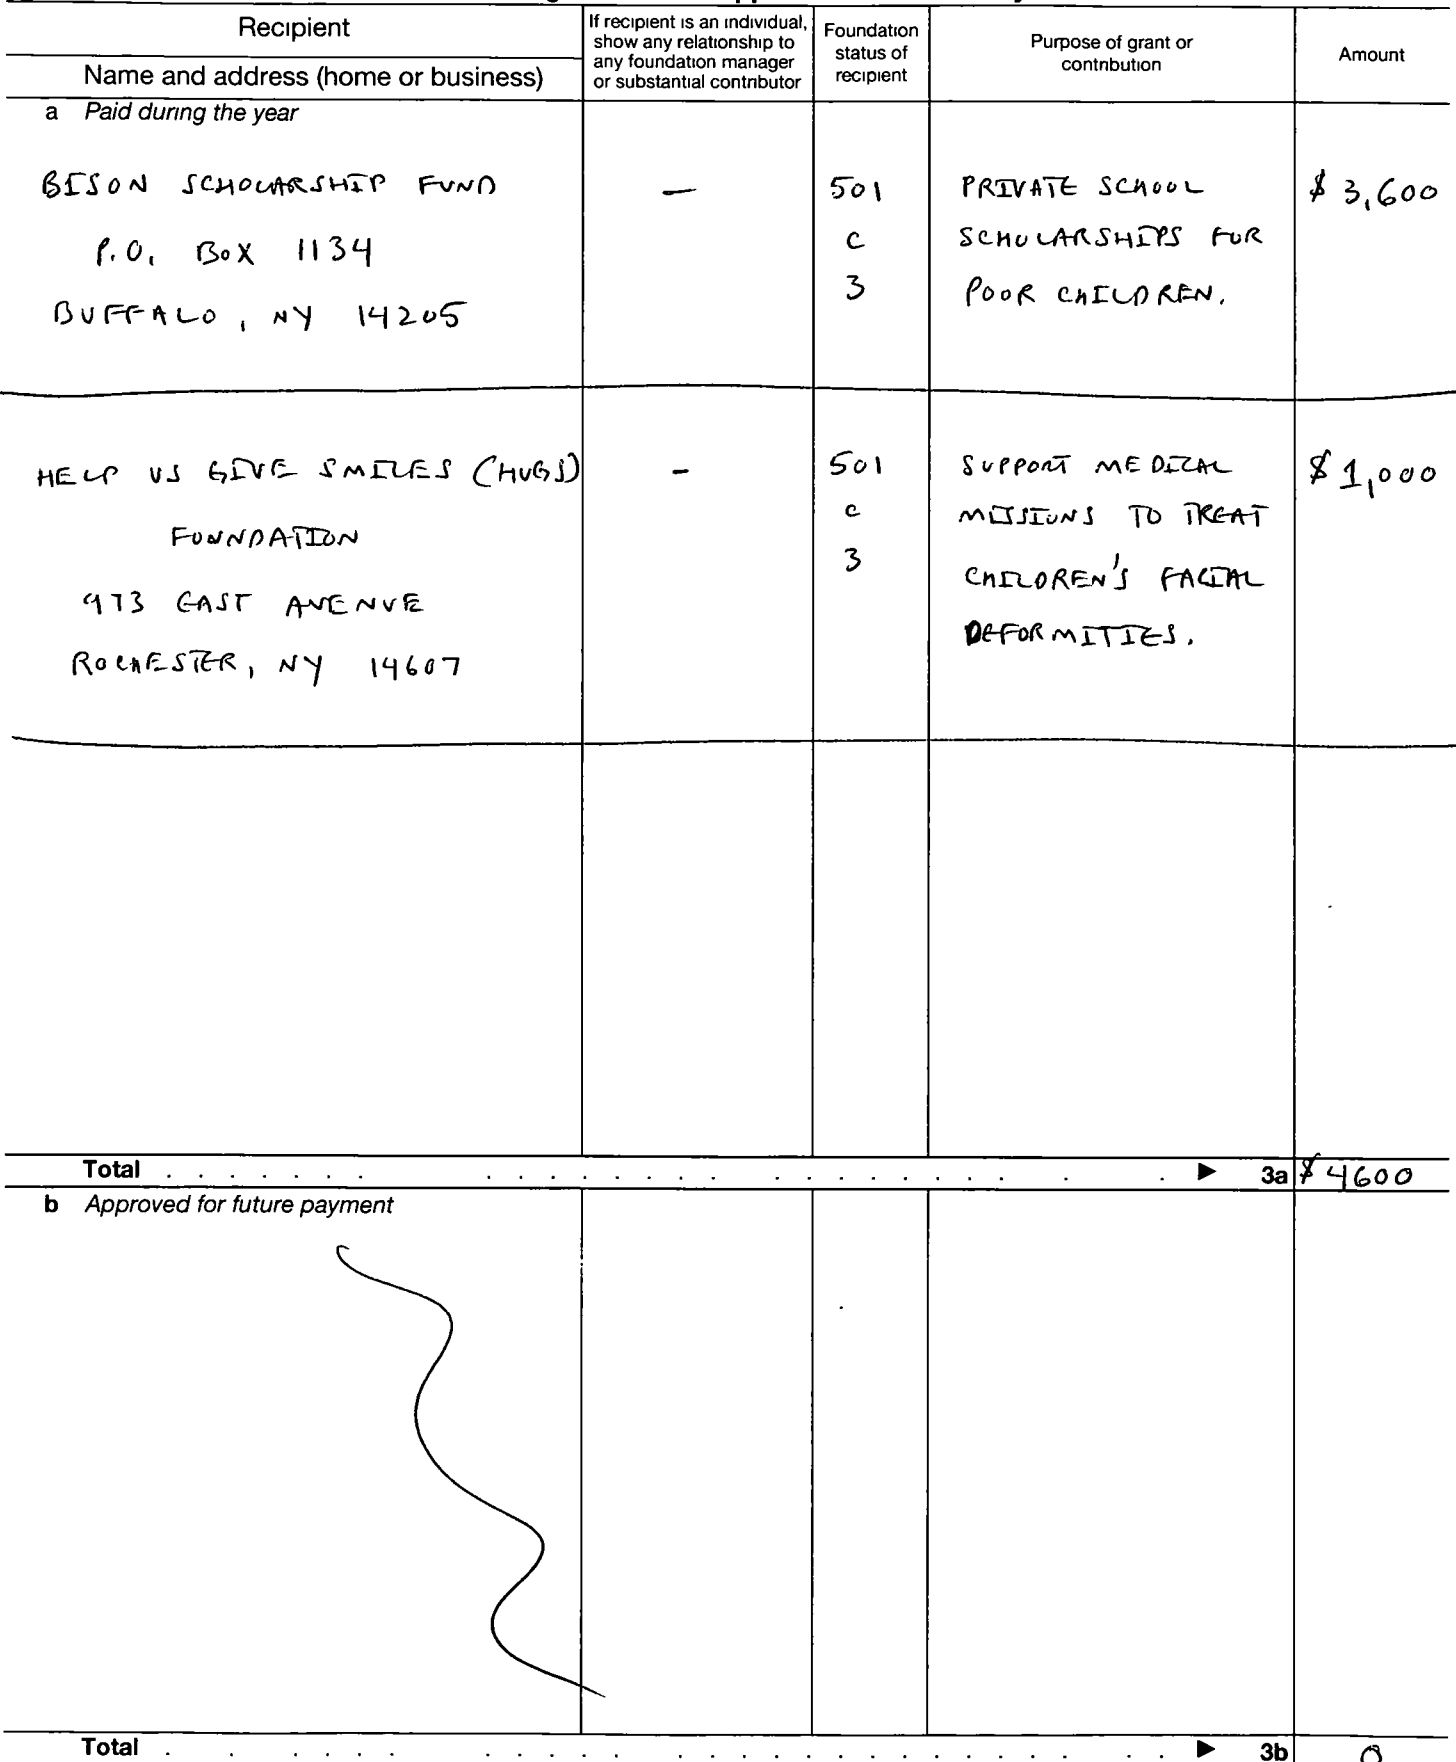 Recipient
Name and address (home or business)
If recipient is an individual,
show any relationship to
any foundation manager
or substantial contributor
Foundation
status of
recipient
Purpose of grant or
contribution
Amount
a Paid during the year
BISON SCHOLARSHIP FUND
P.O. BOX 1134
BUFFALO, NY 14205
—
501
C
3
PRIVATE SCHOOL
SCHOLARSHIPS FOR
POOR CHILDREN.
$ 3,600
HELP US GIVE SMILES (HUGS)
FOUNDATION
973 EAST AVENUE
ROCHESTER, NY 14607
-
501
C
3
SUPPORT MEDICAL
MISSIONS TO TREAT
CHILDREN'S FACIAL
DEFORMITIES.
$ 1,000
Total . . . . . . . ▶ 3a $ 4600
b Approved for future payment
Total . . . . . . . ▶ 3b 0